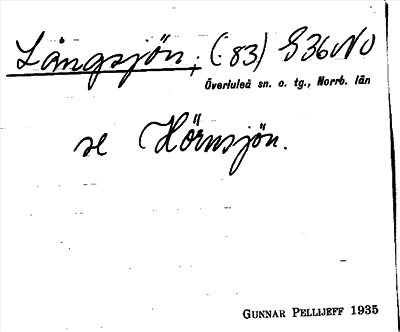 Långsjön, (:83) S36NO
Överluleå sn. o. tg., Norrb. län
se Hörnsjön.
GUNNAR PELLIJEFF 1935